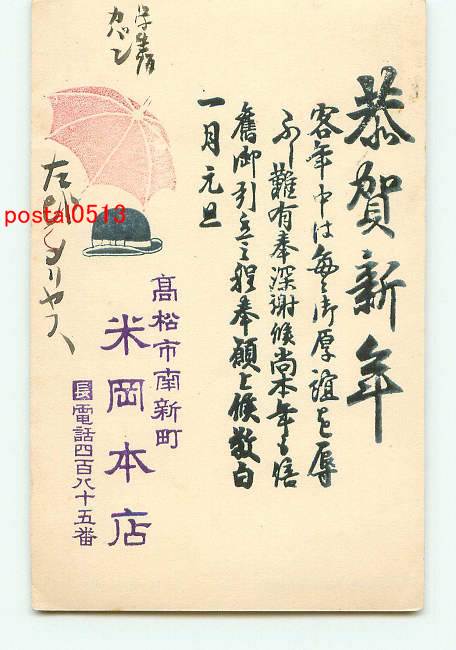 恭賀新年
客年中は毎々御厚誼を辱
ふし難有奉深謝候尚本年も倍
舊御引立之程奉願上候敬白
一月元旦
高松市南新町
米岡本店
長電話四百八十五番
学生用
カバン
メリヤス
postal0513